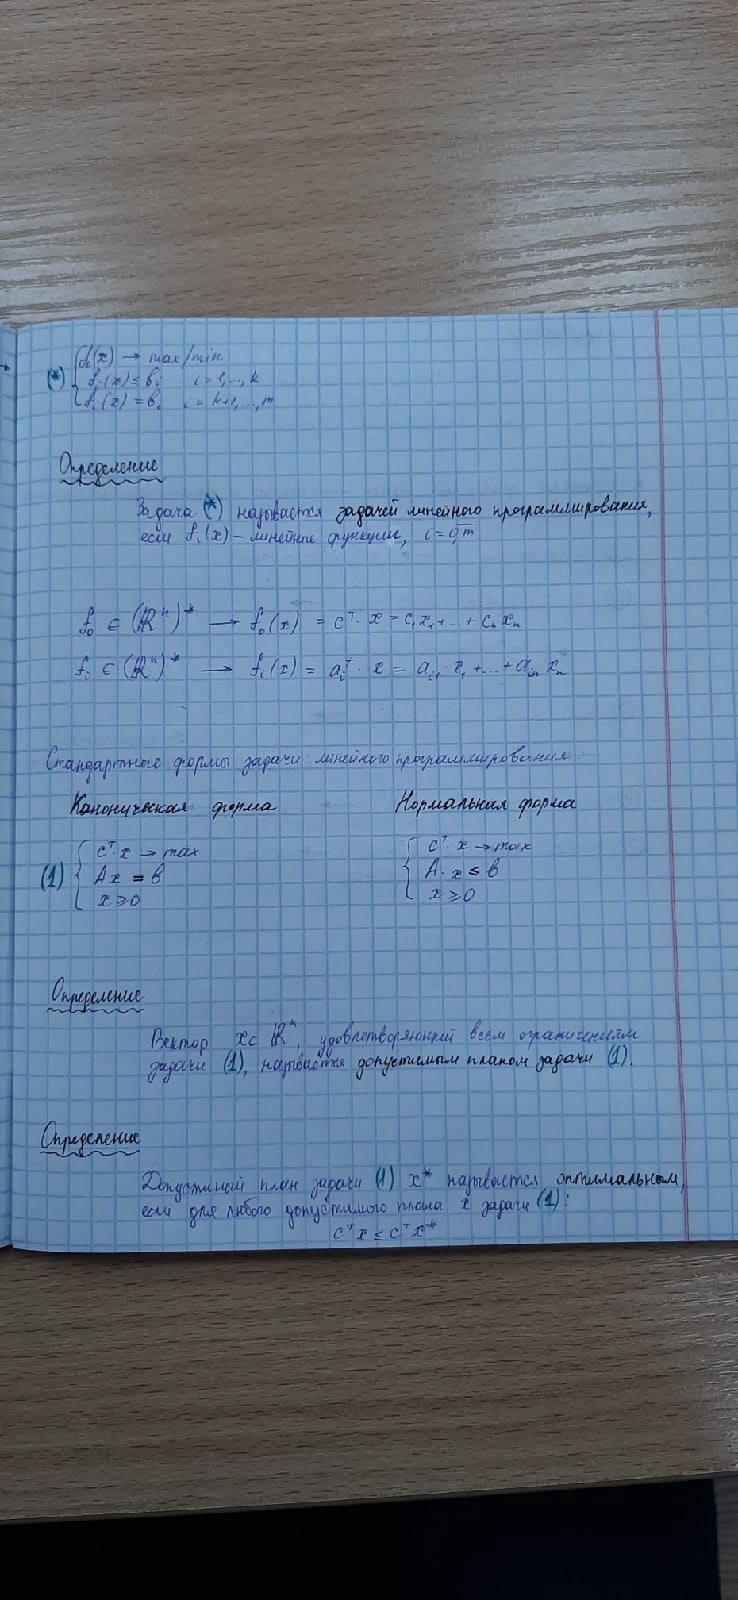 (*) { f₀(x) → max/min
fᵢ(x) ≤ bᵢ i = 1,...,k
fᵢ(x) = bᵢ i = k+1,...,m
Определение
Задача (*) называется задачей линейного программирования,
если fᵢ(x) – линейные функции, i = 0,m
f₀ ∈ (ℝⁿ)* → f₀(x) = cᵀ · x = c₁x₁ + ... + cₙxₙ
fᵢ ∈ (ℝⁿ)* → fᵢ(x) = aᵢᵀ · x = aᵢ₁ · x₁ + ... + aᵢₙ xₙ
Стандартные формы задачи линейного программирования.
Каноническая форма Нормальная форма
(1) { cᵀ · x → max { cᵀ · x → max
Ax = b A · x ≤ b
x ≥ 0 x ≥ 0
Определение
Вектор x ∈ ℝⁿ, удовлетворяющий всем ограничениям
задачи (1), называется допустимым планом задачи (1).
Определение
Допустимый план задачи (1) x* называется оптимальным,
если для любого допустимого плана x задачи (1):
cᵀx ≤ cᵀx*